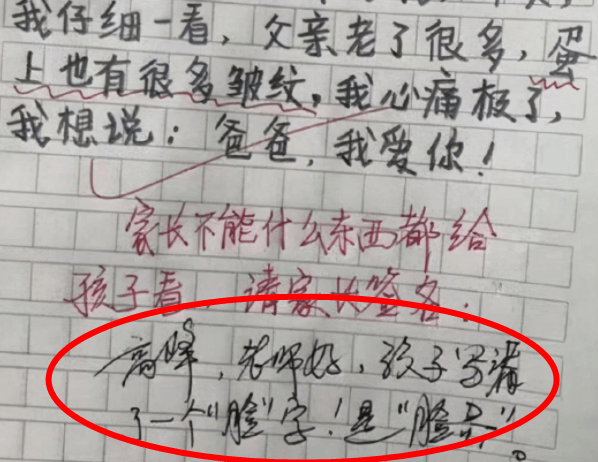 我仔细一看，父亲老了很多，蛋
上也有很多皱纹。我心痛极了，
我想说：爸爸，我爱你！
家长不能什么东西都给
孩子看，请家长签名：
高峰，老师好，孩子写漏
了一个"脸"字！是"脸蛋"。